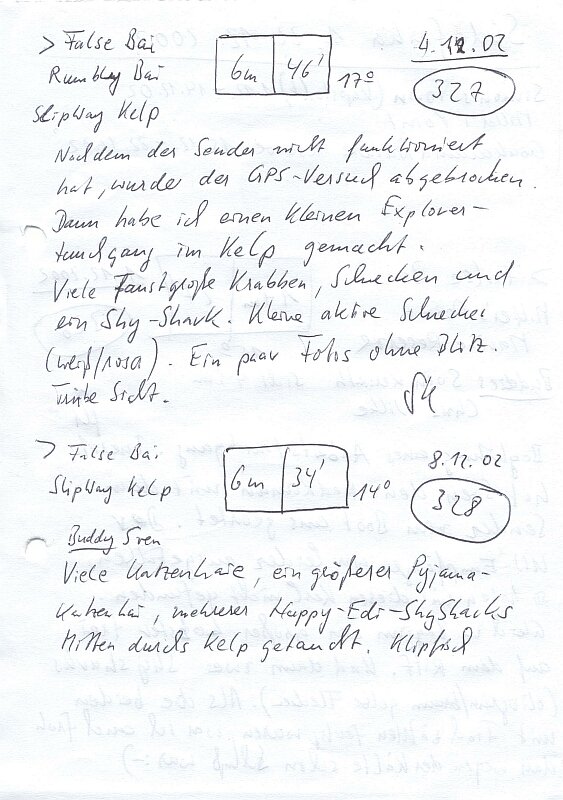 > False Bai
6m 46' 17°
4.12.02
Rumbley Bai
327
Slipway Kelp
Nachdem der Sender nicht funktioniert
hat, wurde der GPS-Versuch abgebrochen.
Dann habe ich einen kleinen Explorer-
tauchgang im Kelp gemacht.
Viele faustgroße Krabben, Schnecken und
ein Shy-Shark. Kleine aktive Schnecke
(weiß/rosa). Ein paar Fotos ohne Blitz.
Trübe Sicht.
> False Bai
6m 34' 14°
8.12.02
Slipway Kelp
328
Buddy Sven
Viele Katzenhaie, ein größerer Pyjama-
Katzenhai, mehrere Happy-Edi-ShySharks
Mitten durchs Kelp getaucht. Klipfisch